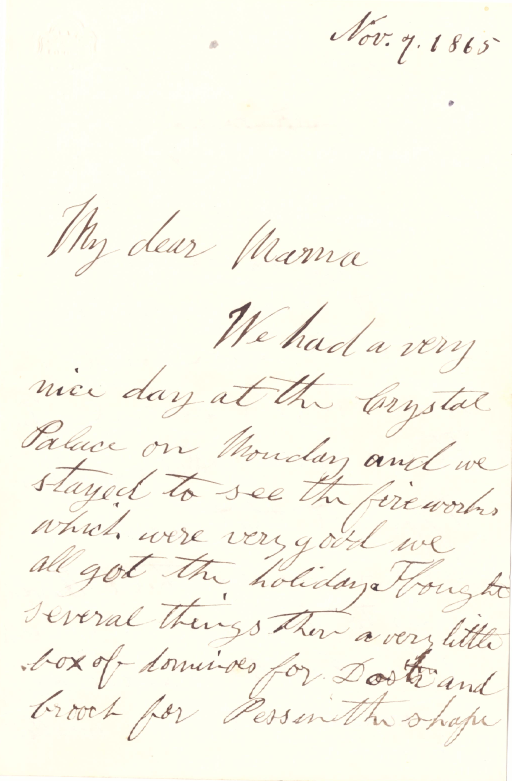 Nov. 7. 1865
My dear Mama
We had a very
nice day at the Crystal
Palace on Monday and we
stayed to see the fireworks
which were very good we
all got the holiday I bought
several things then a very little
box of dominoes for and
brooch for in the shape